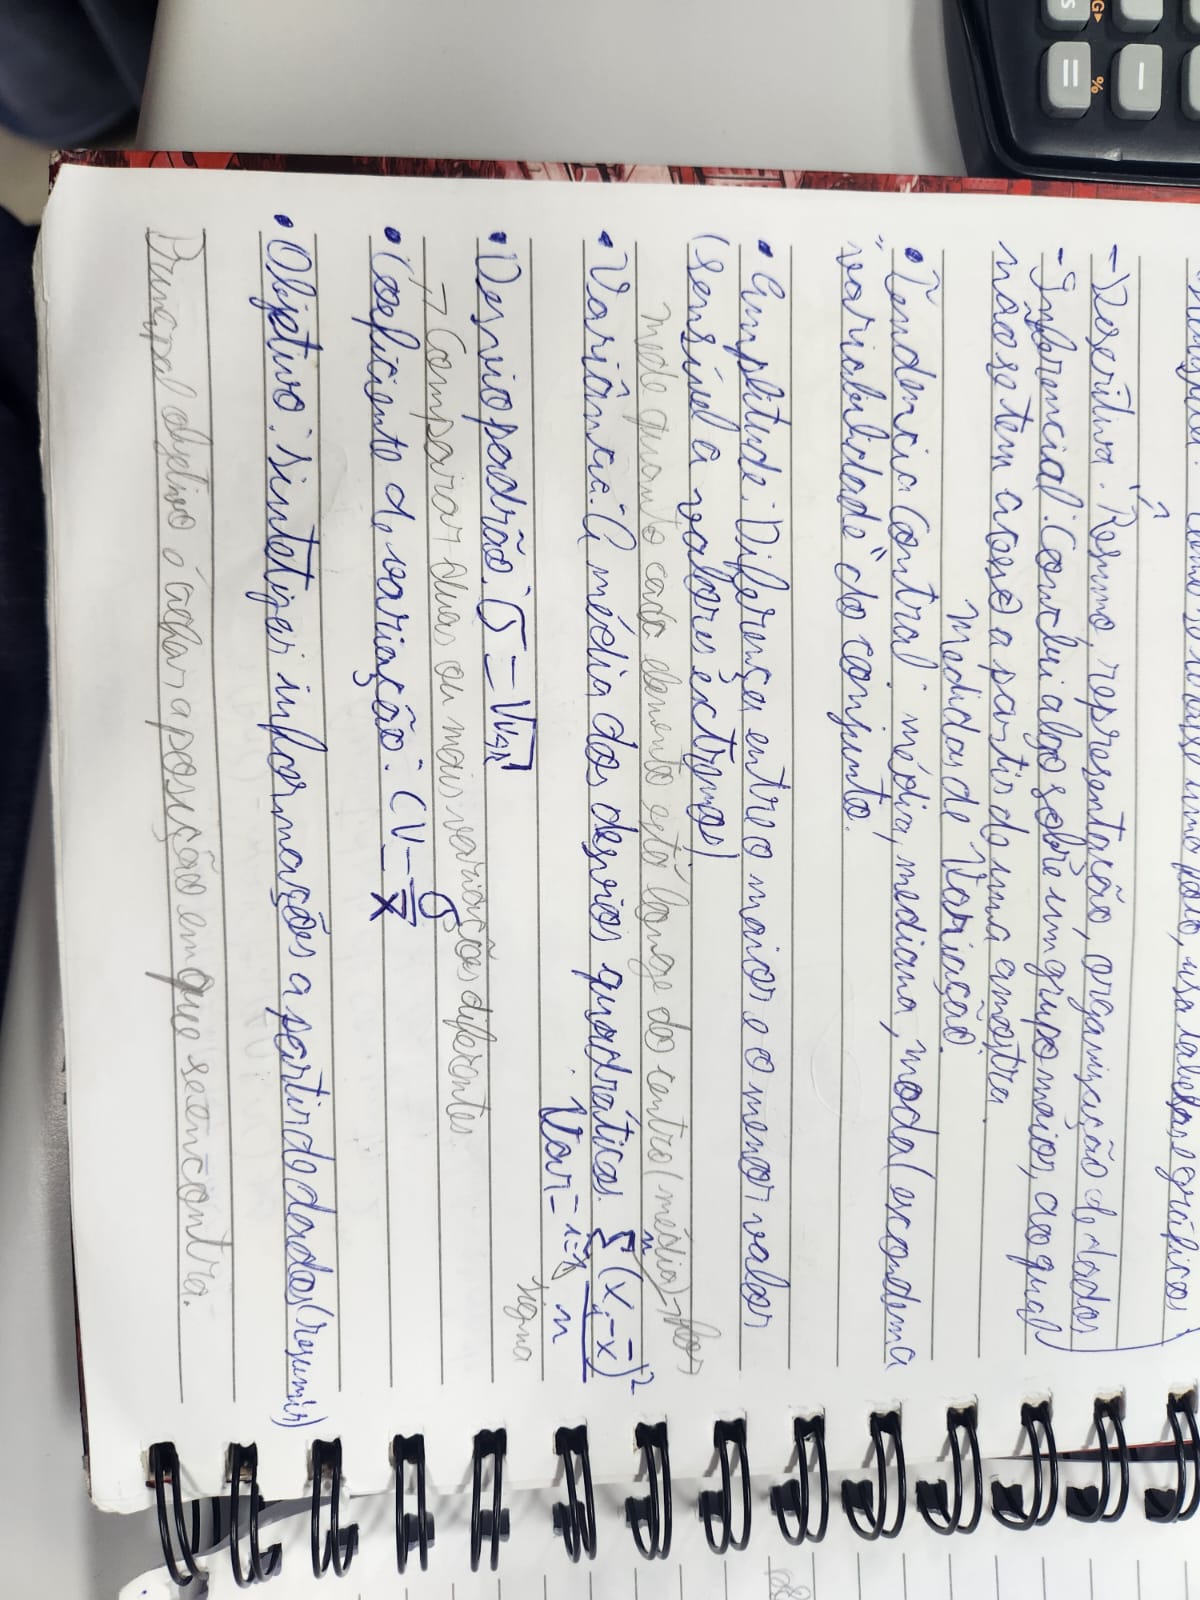 como se realiza uma pesq, usa tabelas, gráficos)
-Descritiva: Resumo, representação, organização de dados
-Inferencial: Conclui algo sobre um grupo maior, ao qual
não se tem acesso a partir de uma amostra.
Medidas de Variação:
• Tendencia Central: média, mediana, moda (escondem a
"variabilidade" do conjunto.
• Amplitude: Diferença entre o maior e o menor valor
(sensível a valores extremos)
mede quanto cada elemento está longe do centro (média)
• Variância: A média dos desvios quadráticos.
Var = n Σ i=1 (xi - x̄)² / n
sigma
• Desvio padrão: σ = √Var
→ Comparar duas ou mais variações diferentes
• Coeficiente de variação: CV = σ / x̄
• Objetivo: sintetizar informações a partir de dados (resumir)
Principal objetivo é achar a posição em que se encontra.
G▸
%
=
−